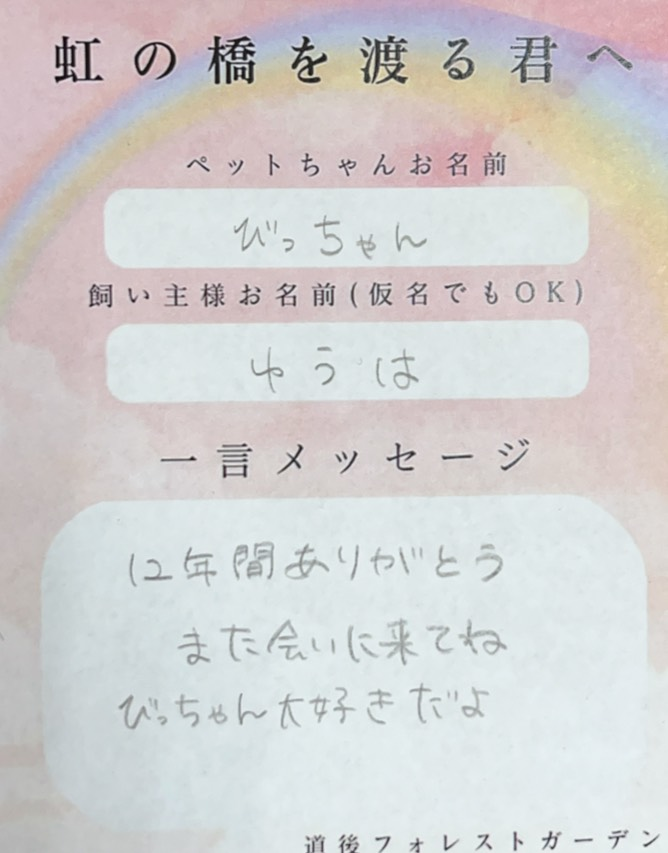 虹の橋を渡る君へ
ペットちゃんお名前
びっちゃん
飼い主様お名前(仮名でもOK)
ゆうは
一言メッセージ
12年間ありがとう
また会いに来てね
びっちゃん大好きだよ
道後フォレストガーデン